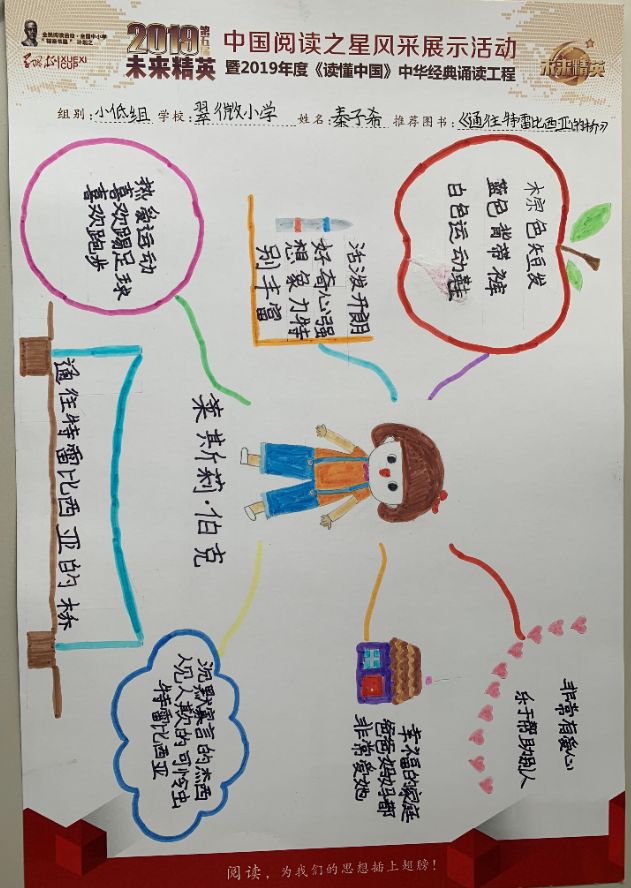 全民阅读活动·全国中小学
"翰墨书星"计划之
XUEXI
CUP
2019
第五季
未来精英
中国阅读之星风采展示活动
暨2019年度《读懂中国》中华经典诵读工程
未来精英
组别:小低组 学校:翠微小学 姓名:秦子希 推荐图书:《通往特雷比西亚的桥》
棕色短发
蓝色背带裤
白色运动鞋
活泼开朗
好奇心强
想象力特
别丰富
热爱运动
喜欢踢足球
喜欢跑步
莱斯莉·伯克
通往特雷比西亚的桥
非常有爱心
乐于帮助别人
幸福的家庭
爸爸妈妈都
非常爱她
沉默寡言的杰西
人见人欺的可怜虫
特雷比西亚
阅读,为我们的思想插上翅膀!